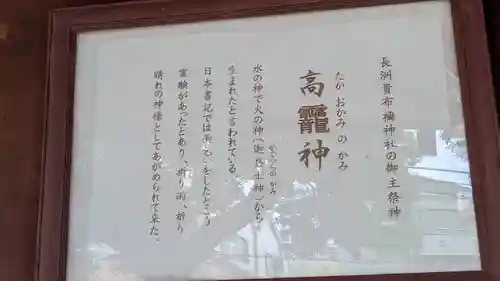 長洲貴布禰神社の御主祭神
たか おかみ の かみ
高龗神
水の神で火の神（迦具土神）から
かぐつちのかみ
生まれたと言われている。
日本書記では雨乞いをしたところ
霊験があったとあり、祈り雨、祈り
晴れの神様としてあがめられて来た。